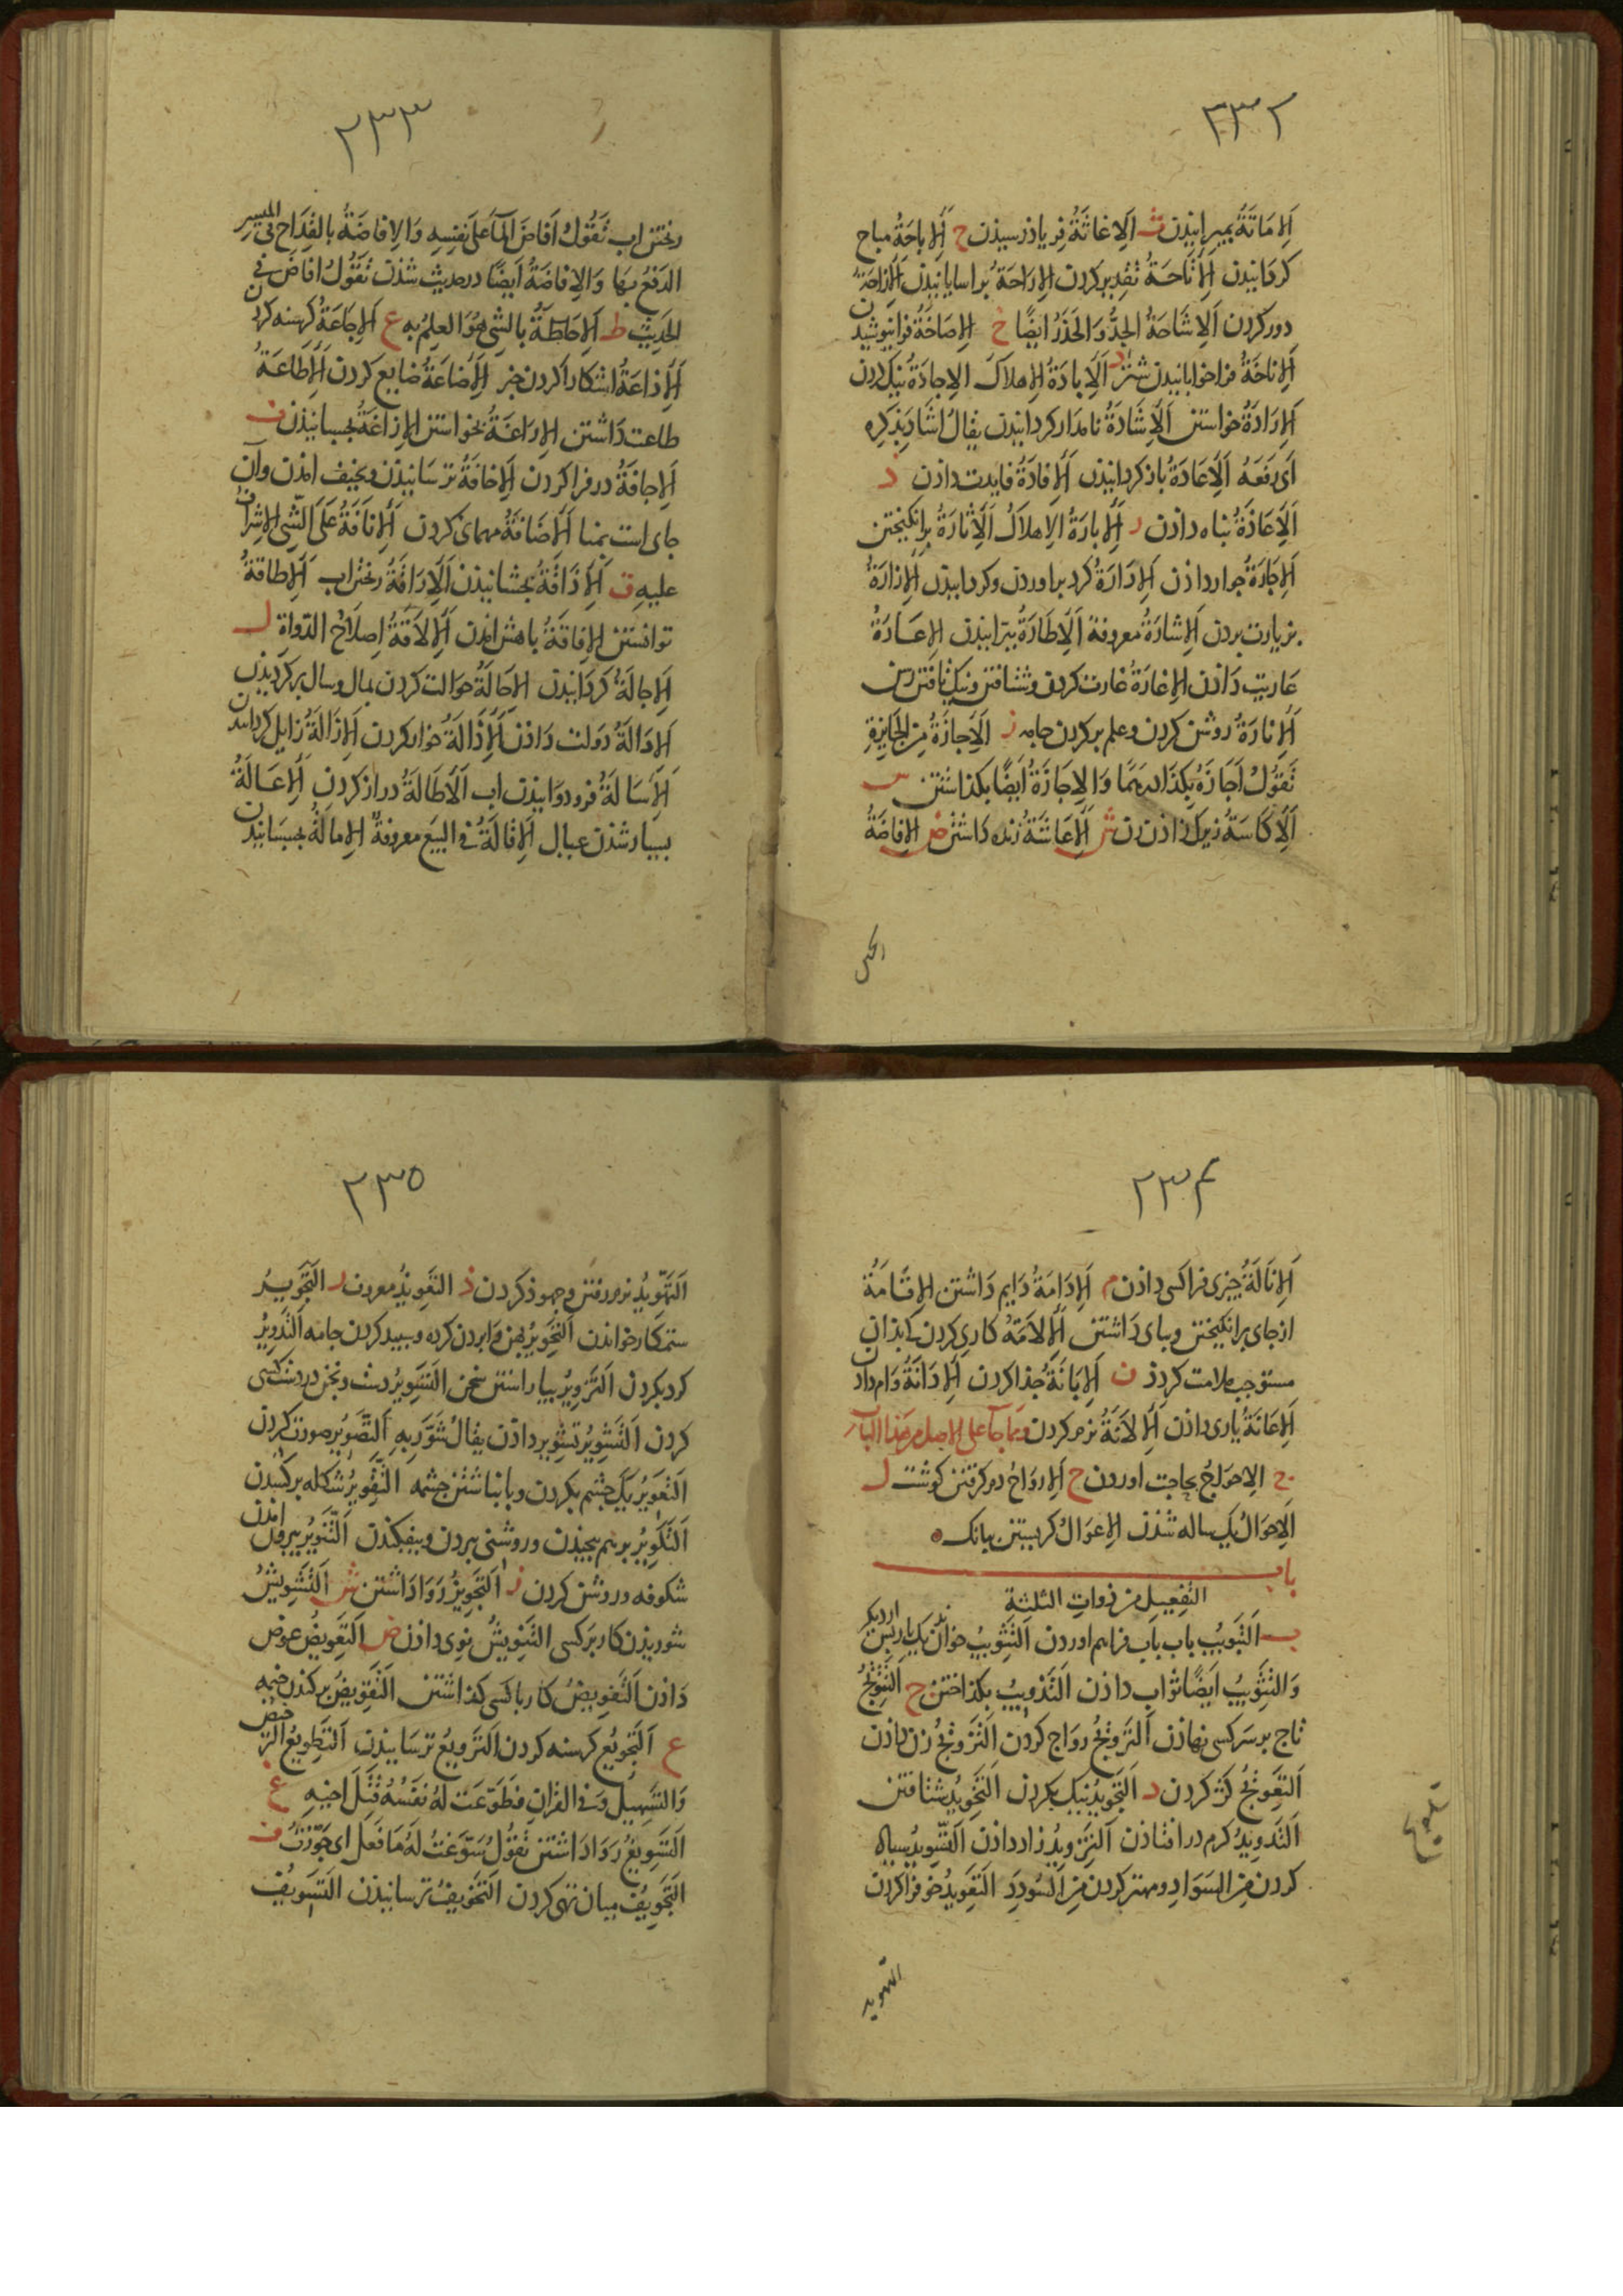 ۲۳۲
اَلاِمَاتَةُ بمیرانیذن ث اَلاِغاثَةُ فریاذ رسیذن ح اَلاِباحَةُ مباح
کردانیدن اَلاِتَاحَةُ تقدیر کردن الاِرَاحَةُ براسایانیذن اَلاِزَاحَةُ
دور کردن اَلاِشَاحَةُ الجِدُّ وَالحَذَرُ ایضًا خ الاِصَاخَةُ فرانیوشیدن
اَلاِناخَةُ فراخوابانیدن شتر د اَلاِبادَةُ الاِهلاک الاِجادَةُ نیک کردن
اَلاِرَادَةُ خواستن اَلاِشَادَةُ نامدار کردانیدن یقالُ اشَادَ بِذِکرِه
اَی رَفَعَهُ اَلاِعَادَةُ باز کردانیدن اَلاِفادَةُ فایدت داذن ذ
اَلاِعَاذَةُ پناه داذن ر اَلاِبارَةُ الاِهلاکُ اَلاِثَارَةُ برانکیختن
اَلاِجَارَةُ جوار داذن اَلاِدَارَةُ کرد براوردن وکردانیدن اَلاِزارَةُ
بزیارت بردن اَلاِشارَةُ معروفة اَلاِطَارَةُ بپرانیدن الاِعَارَةُ
عاریت دَاذن الاِغَارَةُ غارت کردن وشتافتن ونیک تافتن رسن
اَلاِنارَةُ روشن کردن وعلم برکردن جامه ز اَلاِجازَةُ مِن الجَایزةِ
تَقولُ اَجَازَهُ بِکَذَا دِرهَمًا وَالاِجَازَةُ اَیضًا بکذاشتن س
اَلاِکَاسَةُ زیرک زاذن زن ش اَلاِعَاشَةُ زنده دَاشتن ض الاِفاضَةُ
۲۳۳
ریختن اب تَقُولُ اَفاضَ الماءَ عَلی نَفسِهِ وَالاِفاضَةُ بالقِدَاحِ فی المَیسِرِ
الدَفعُ بِهَا وَالاِفاضَةُ اَیضًا در حدیث شذن تَقُولُ افاضَ فی
الحَدِیثِ ط اَلاِحَاطَةُ بالشیِ هُوَ العِلمُ بِهِ ع اَلاِجَاعَةُ کرسنه کردن
اَلاِذاعَةُ اشکارا کردن خبر اَلاِضَاعَةُ ضایع کردن اَلاِطاعَةُ
طاعت دَاشتن الاِرَاغَةُ بخواستن الاِزاغَةُ بچسپانیذن ف
اَلاِجافَةُ در فرا کردن اَلاِخافَةُ ترسَانیذن وبخیف امذن وآن
جای است بمنا اَلاِضَافَةُ مهمانی کردن اَلاِنافَةُ عَلَی الشَّیِ الاِشرَافُ
علیهِ ق اَلاِذَاقَةُ بچشانیذن اَلاِرَاقَةُ ریختن اب اَلاِطاقةُ
توانستن الاِفاقَةُ باهش امذن اَلاِلاقَةُ اِصلَاحُ الدَّواةِ ل
اَلاِجالَةُ کردَانیذن الاِحَالَةُ حوالت کردن بمال وسال برکردیذن
اَلاِدَالَةُ دَولت دَاذن اَلاِذالَةُ خوار کردن اَلاِزَالَةُ زایل کردانیدن
اَلاِسَالَةُ فرو دوَانیذن اب اَلاِطَالَةُ دراز کردن اَلاِعَالَةُ
بسیار شذن عیال اَلاِقالَةُ فی البیع معروفةٌ الاِمالَةُ بچسپانیذن
۲۳۴
اَلاِنالَةُ چیزی فراکسی داذن م اَلاِدَامَةُ دایم دَاشتن الاِقَامَةُ
از جای برانکیختن وبپای دَاشتن اَلاِلامَةُ کاری کردن که بذان
مستوجب ملامت کردذ ن اَلاِبَانَةُ جُذا کردن اَلاِدَانَةُ وَام دادن
اَلاِعَانَةُ یاری داذن اَلاِلَانَةُ نرم کردن وَمِمّا جآءَ عَلی الاصل مِن هَذا الباب
ج الاِحوَاجُ بحاجت اوردن ح اَلاِروَاحُ در کرفتن کوشت ل
اَلاِحوَالُ یک ساله شذن الاِعوَالُ کریستن ببانک
باب
التَّفعِیلِ مِن ذَواتِ الثلثةِ
ب اَلتَّبوِیبُ باب باب فراهم اوردن اَلتَّثوِیبُ
وَالتَّثوِیبُ اَیضًا ثواب داذن التَّذوِیبُ بکذاختن ج اَلتَّتوِیجُ
تاج بر سر کسی نهاذن اَلتَّروِیجُ رواج کردن اَلتَّزوِیجُ زن داذن
اَلتَّعوِیجُ کژ کردن د اَلتَّجوِیدُ نیک بکردن اَلتَّخوِیدُ شتافتن
اَلتَّدوِیدُ کرم در افتاذن اَلتَّزوِیدُ زاد داذن اَلتَّسوِیدُ سیاه
کردن مِن السَوَادِ ومهتر کردن مِن السُّودِدِ التَّعوِیدُ خو فرا کردن
۲۳۵
اَلتَّهوِیدُ نرم رفتن وجهوذ کردن ذ التَّعوِیذُ معروف ر اَلتَّجوِیرُ
ستمکار خواندن اَلتَّحوِیرُ وسپید کردن جامه اَلتَّدوِیرُ
کرد بکردن اَلتَّزوِیرُ بیاراستن سخن التَّسوِیرُ
کردن اَلتَّشوِیرُ تشویر داذن یقالُ شَوَّرَ بِهِ اَلتَّصوِیرُ صورت کردن
اَلتَّعوِیرُ یک چشم بکردن وبانباشتن چشمه التَّقوِیرُ
اَلتَّکوِیرُ برهم پیچیذن وروشنی ببردن وبیفکندن اَلتَّنوِیرُ بیرون امدن
شکوفه وروشن کردن ز اَلتَّجوِیزُ رَوَا دَاشتن ش اَلتَّشوِیشُ
شوریذن کار بَر کسی التَّنوِیشُ داذن ض اَلتَّعوِیضُ عوض
دَاذن اَلتَّفوِیضُ کار باکسی کذاشتن اَلتَّقوِیضُ برکندن خیمه
ع اَلتَّجوِیعُ کرسنه کردن اَلتَّروِیعُ ترسَانیذن اَلتَّطوِیعُ التَّرخِیصُ
وَالتَّسهِیلُ وَفی القرانِ فَطَوَّعَت لَهُ نَفسُهُ قَتلَ اَخِیهِ غ
اَلتَّسوِیغُ رَوَا دَاشتن تَقُولُ سَوَّغتُ لَهُ مَا فَعَلَ ای جَوَّزتُ ف
التَّجوِیفُ میان تهی کردن اَلتَّخوِیفُ ترسانیذن التَّسوِیفُ